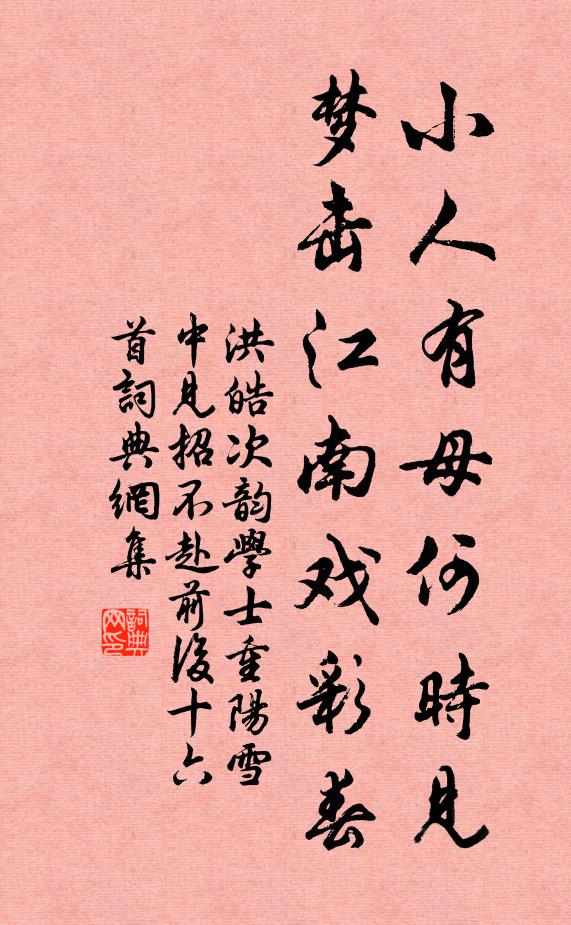 小人有母何時見
梦击江南戏彩春
洪皓次韵學士重陽雪
中見招不赴前後十六
首詞典網集
詞典
网印